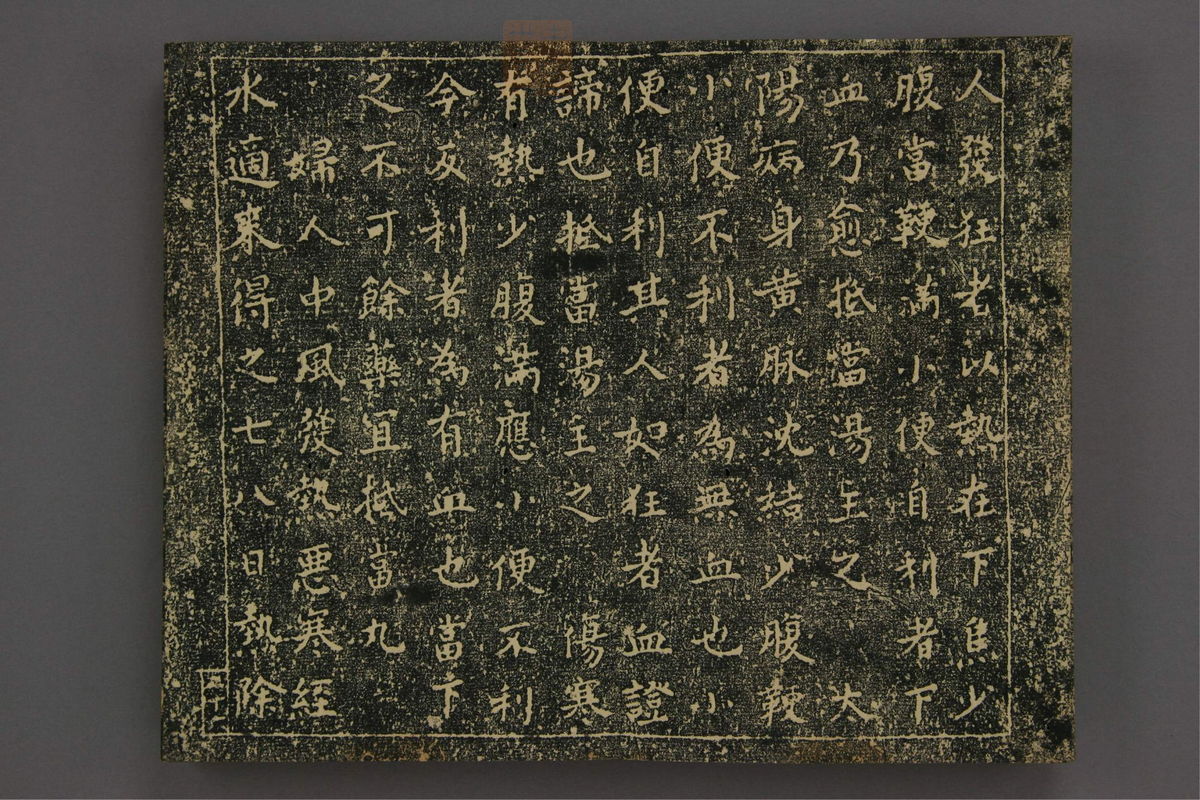 人發狂者以熱在下焦少
腹當鞕满小便自利者下
血乃愈抵當湯主之　太
陽病身黄脉沈結少腹鞕
小便不利者為無血也小
便自利其人如狂者血證
諦也抵當湯主之　傷寒
有熱少腹满應小便不利
今反利者為有血也當下
之不可餘藥宜抵當丸
婦人中風發熱惡寒經
水適来得之七八日熱除